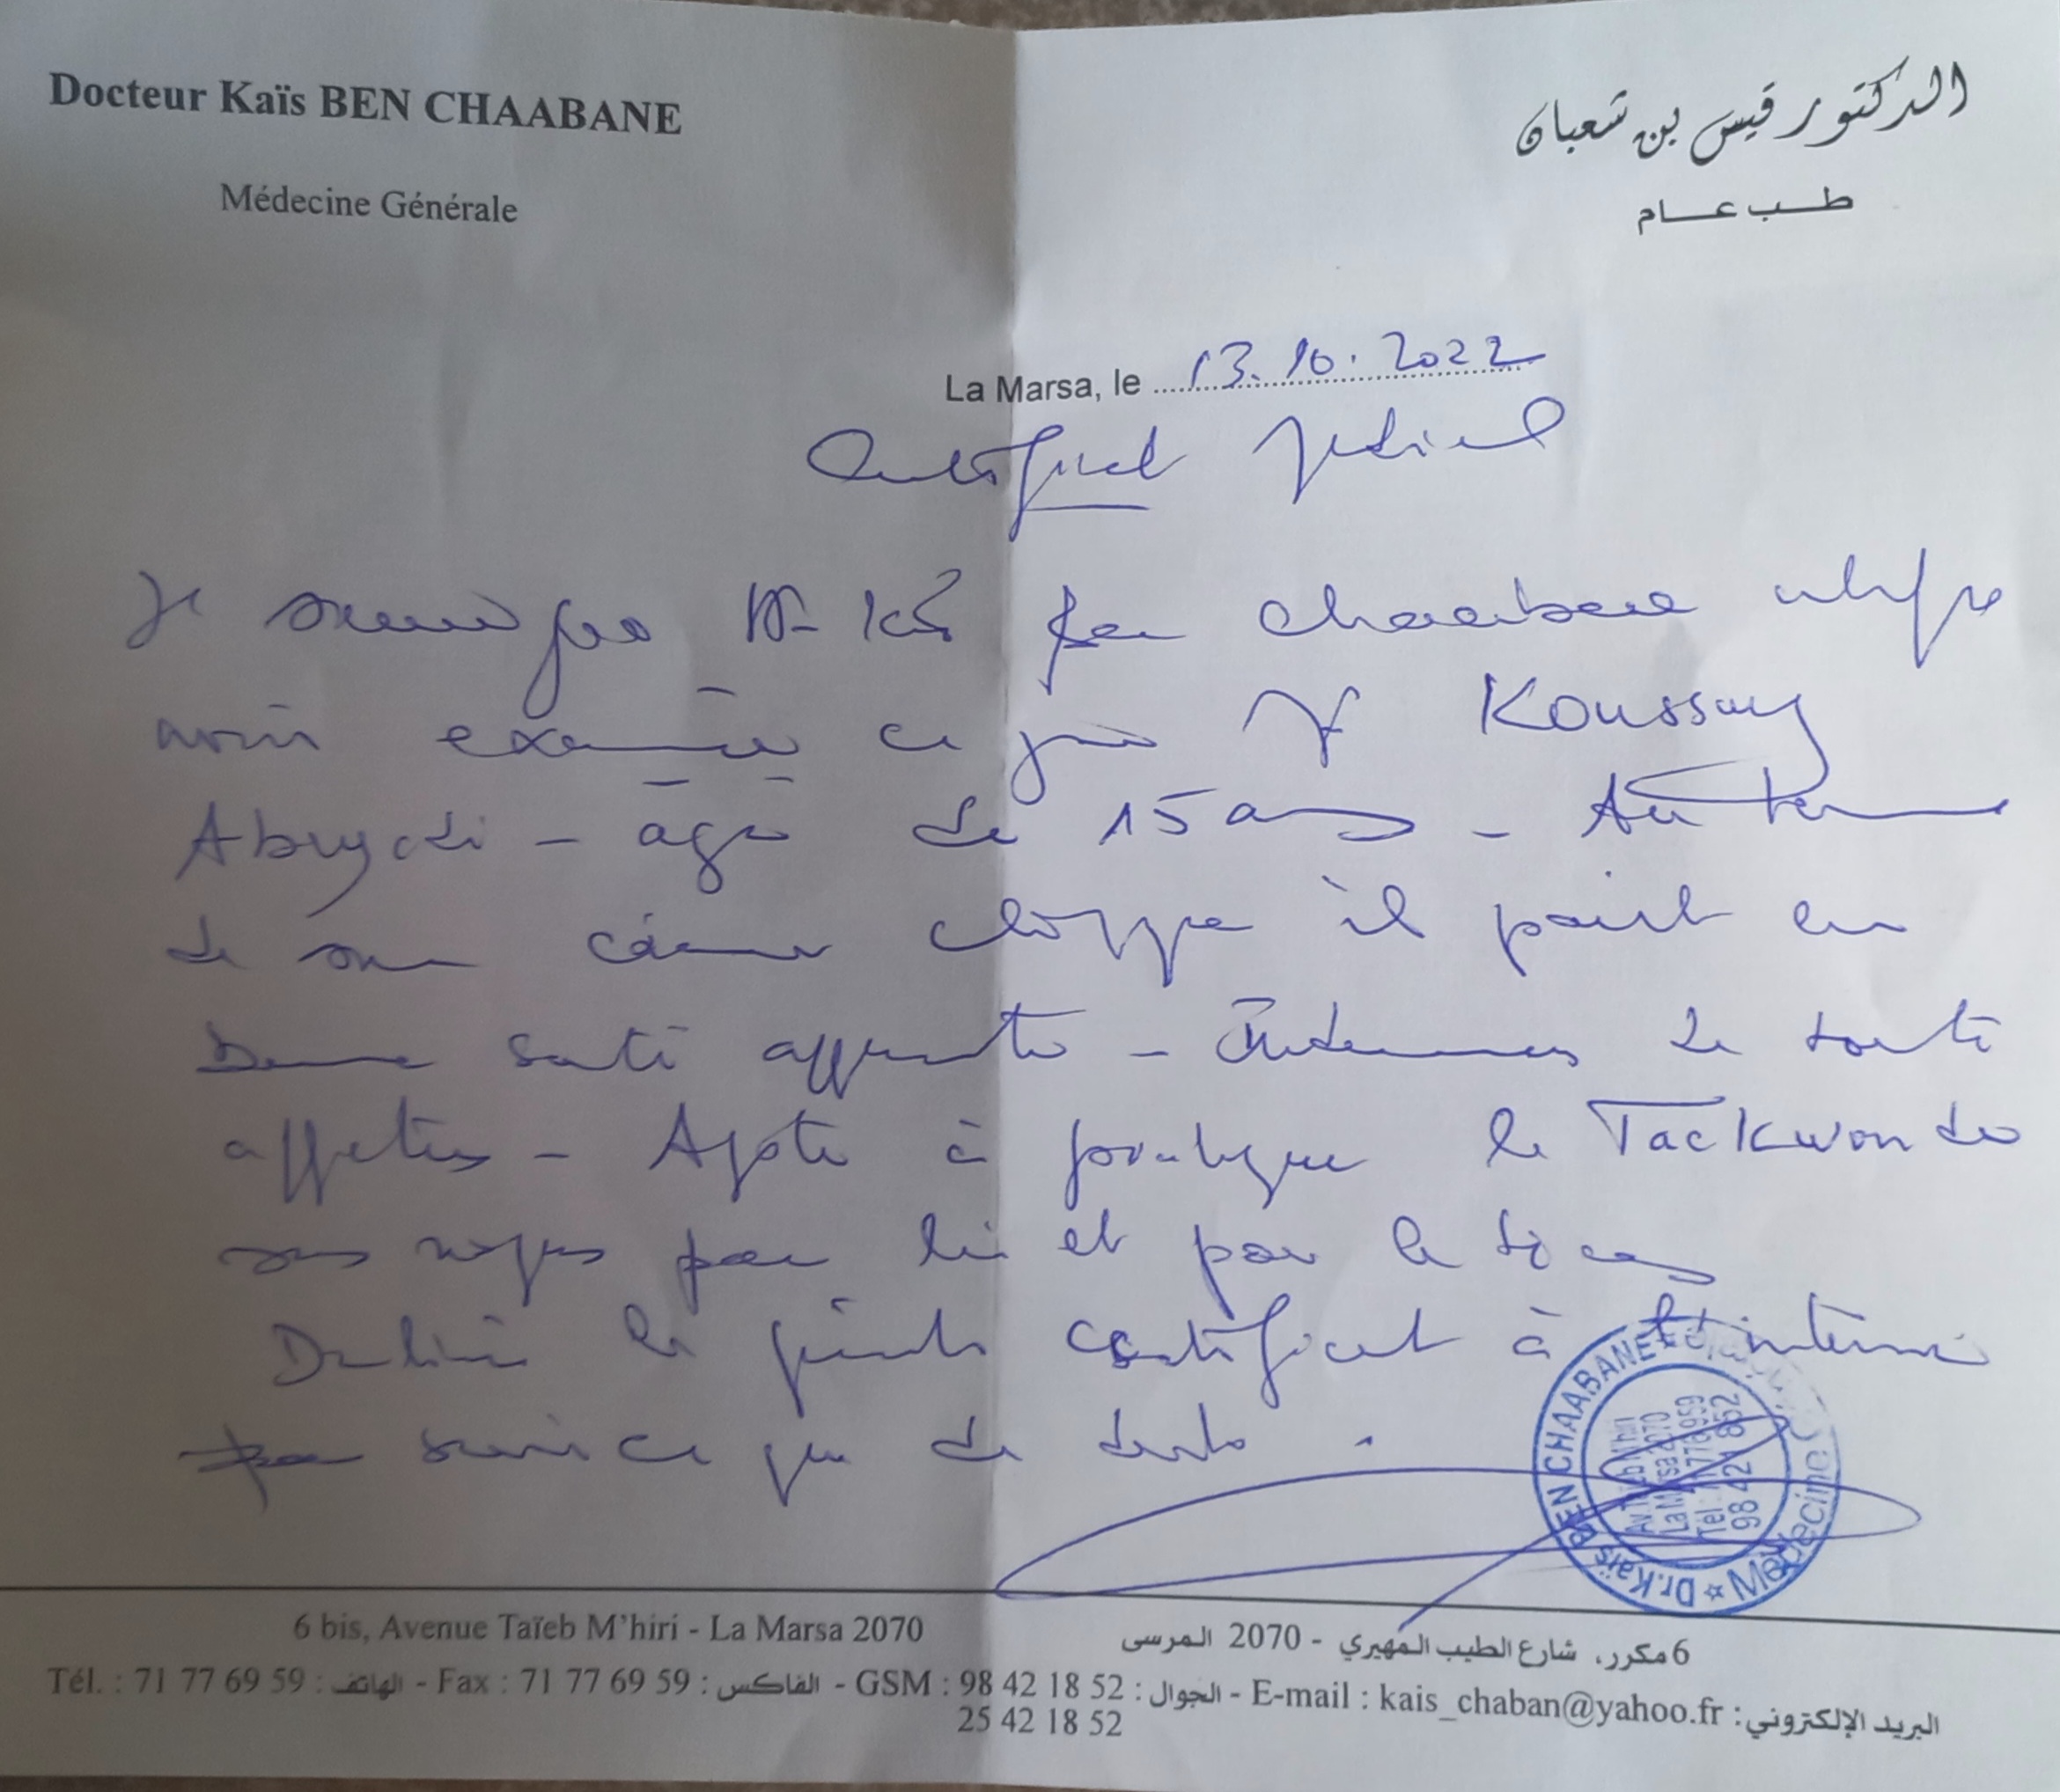 Docteur Kaïs BEN CHAABANE
الدكتور قيس بن شعبان
Médecine Générale
طب عام
La Marsa, le 13.10.2022
Certificat Médical
Je Dr Kaïs Ben Chaabane
avoir examiné ce jour Koussay
âgé de 15 ans - Au terme
de son examen clinique il paraît en
Bonne santé apparente - de toute
affection - Apte à pratiquer le Taekwondo
sans risques pour lui et pour le
Délivré le présent certificat à l'intéressé
pour servir ce que de droit.
Dr. Kaïs BEN CHAABANE ☆ Médecine
Av Taïeb M'hiri
La Marsa 2070
Tél : 71 776 959
98 421 852
6 bis, Avenue Taïeb M'hiri - La Marsa 2070
6 مكرر، شارع الطيب المهيري - 2070 المرسى
Tél. : 71 77 69 59 : الهاتف - Fax : 71 77 69 59 : الفاكس - GSM : 98 42 18 52 : الجوال - E-mail : kais_chaban@yahoo.fr : البريد الإلكتروني
25 42 18 52